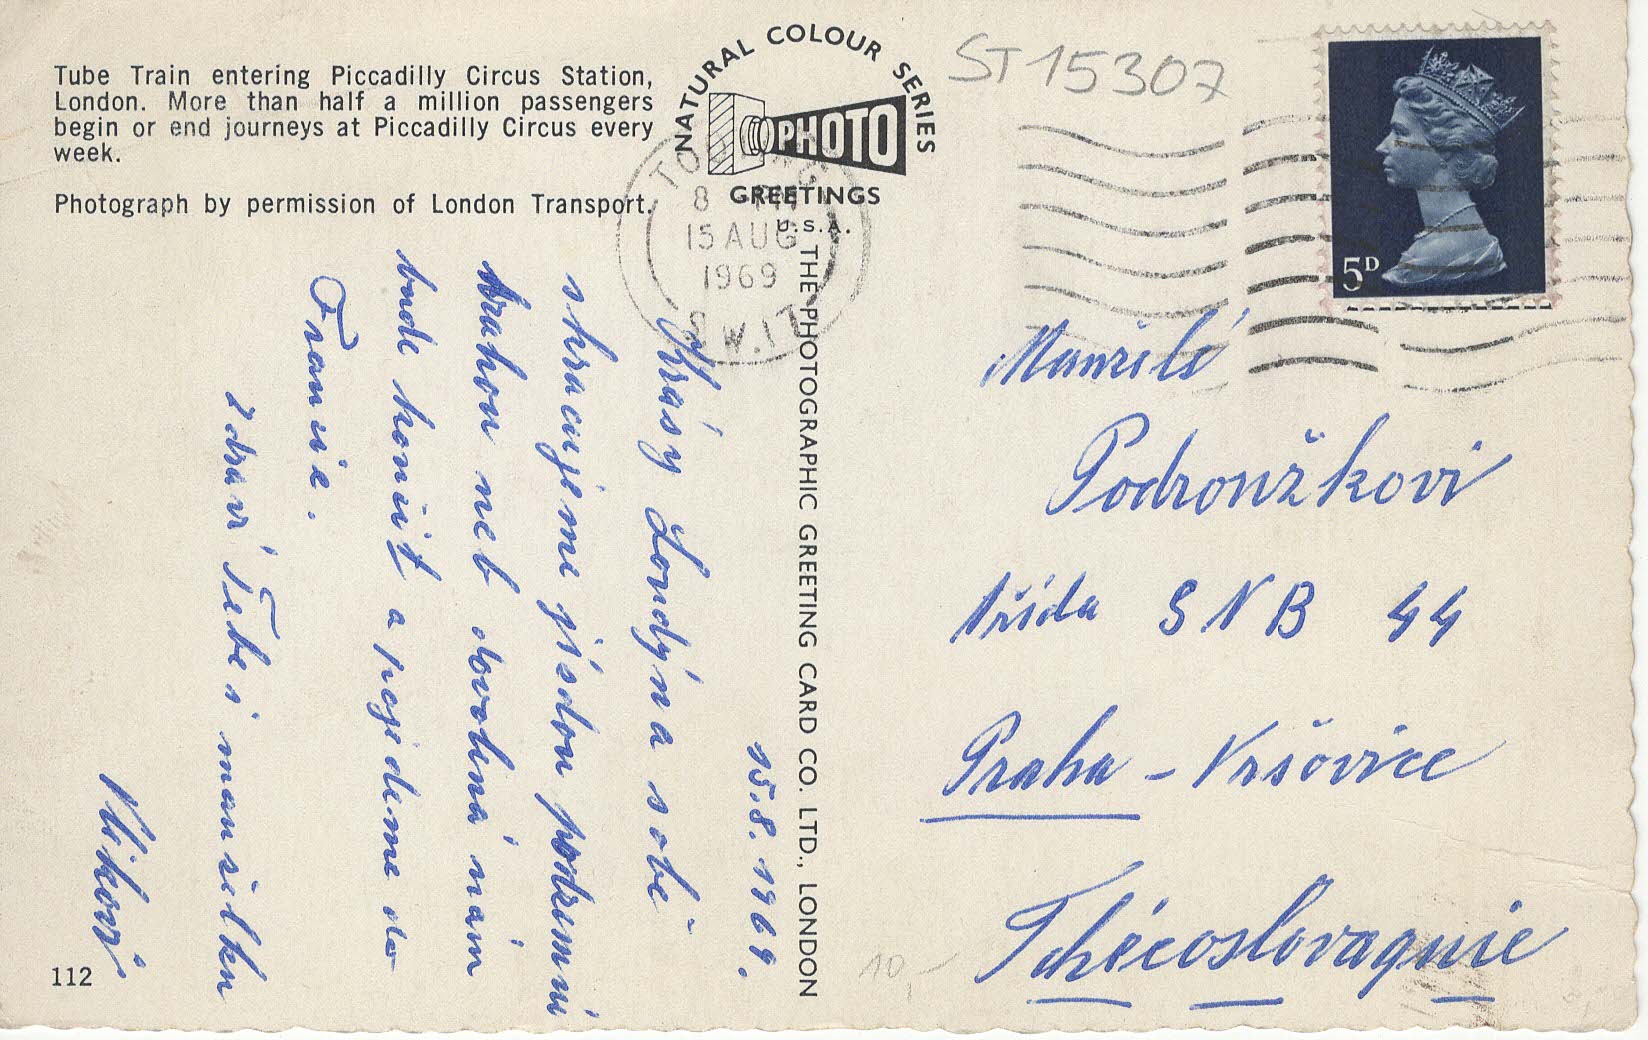 Tube Train entering Piccadilly Circus Station,
London. More than half a million passengers
begin or end journeys at Piccadilly Circus every
week.
Photograph by permission of London Transport.
NATURAL COLOUR SERIES
PHOTO
GREETINGS
U.S.A.
THE PHOTOGRAPHIC GREETING CARD CO. LTD., LONDON
ST 15307
8
15 AUG
1969
S.W.17
5D
15.8.1969.
Krásy Londýna sobě
zkracujeme jízdou podzemní
drahou neb dovolená nám
bude končit a pojedeme do
Francie.
Zdraví Tebe i manželku
Vlikovi
Manželé
Podroužkovi
třída SNB 44
Praha - Vršovice
Tchécoslovaquie
10,-
112